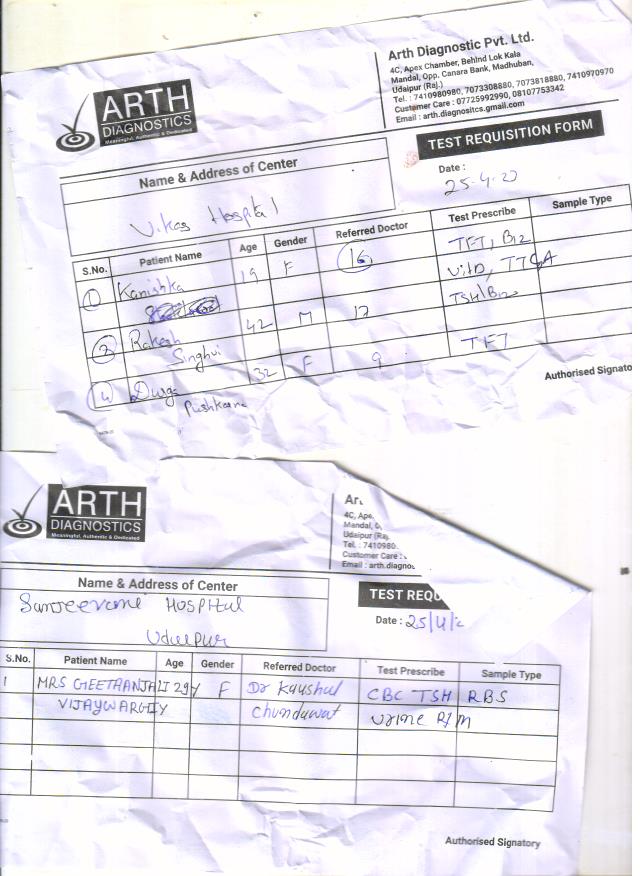 ARTH
DIAGNOSTICS
Meaningful, Authentic & Dedicated
Arth Diagnostic Pvt. Ltd.
4C, Apex Chamber, Behind Lok Kala
Mandal, Opp. Canara Bank, Madhuban,
Udaipur (Raj.)
Tel. : 7410980980, 7073308880, 7073818880, 7410970970
Customer Care : 07725992990, 08107753342
Email : arth.diagnositcs.gmail.com
TEST REQUISITION FORM
Name & Address of Center
Date :
25-4-22
Vikas Hospital
S.No. Patient Name Age Gender Referred Doctor Test Prescribe Sample Type
1 Kanishka 19 F 16 TFT, B12
VitD, TTGA
Rakesh 42 M 17 TSH B12
Singhvi
4 Durga 32 F 9 TFT
Pushkarna
Authorised Signatory
ARTH
DIAGNOSTICS
Meaningful, Authentic & Dedicated
4C, Ape
Mandal, O
Udaipur (Raj
Tel. : 7410980
Customer Care :
Email : arth.diagnos
Name & Address of Center
TEST REQU
Sanjeevani HOSPItal
Date : 25/4/2
Udaipur
S.No. Patient Name Age Gender Referred Doctor Test Prescribe Sample Type
1 MRS GEETAANJALI 29Y F Dr Kaushal CBC TSH RBS
VIJAYWARGIY Chundawat Urine R/M
Authorised Signatory